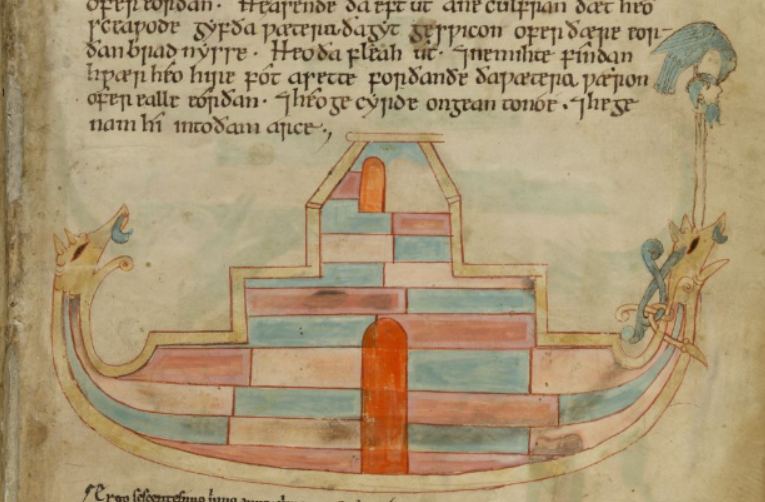 ofer eorðan. He asende ða eft ut ane culfran ðæt heo
sceaƿode gyf ða ƿætera ða gyt gesƿicon ofer ðære eor-
ðan bradnysse. Heo ða fleah ut. ⁊ ne mihte findan
hƿær heo hire fot asette forðan ðe ða ƿætera ƿæron
ofer ealle eorðan. ⁊ heo gecyrde ongean to noe. ⁊ he ge
nam hi into ðam arce.,
Ergo